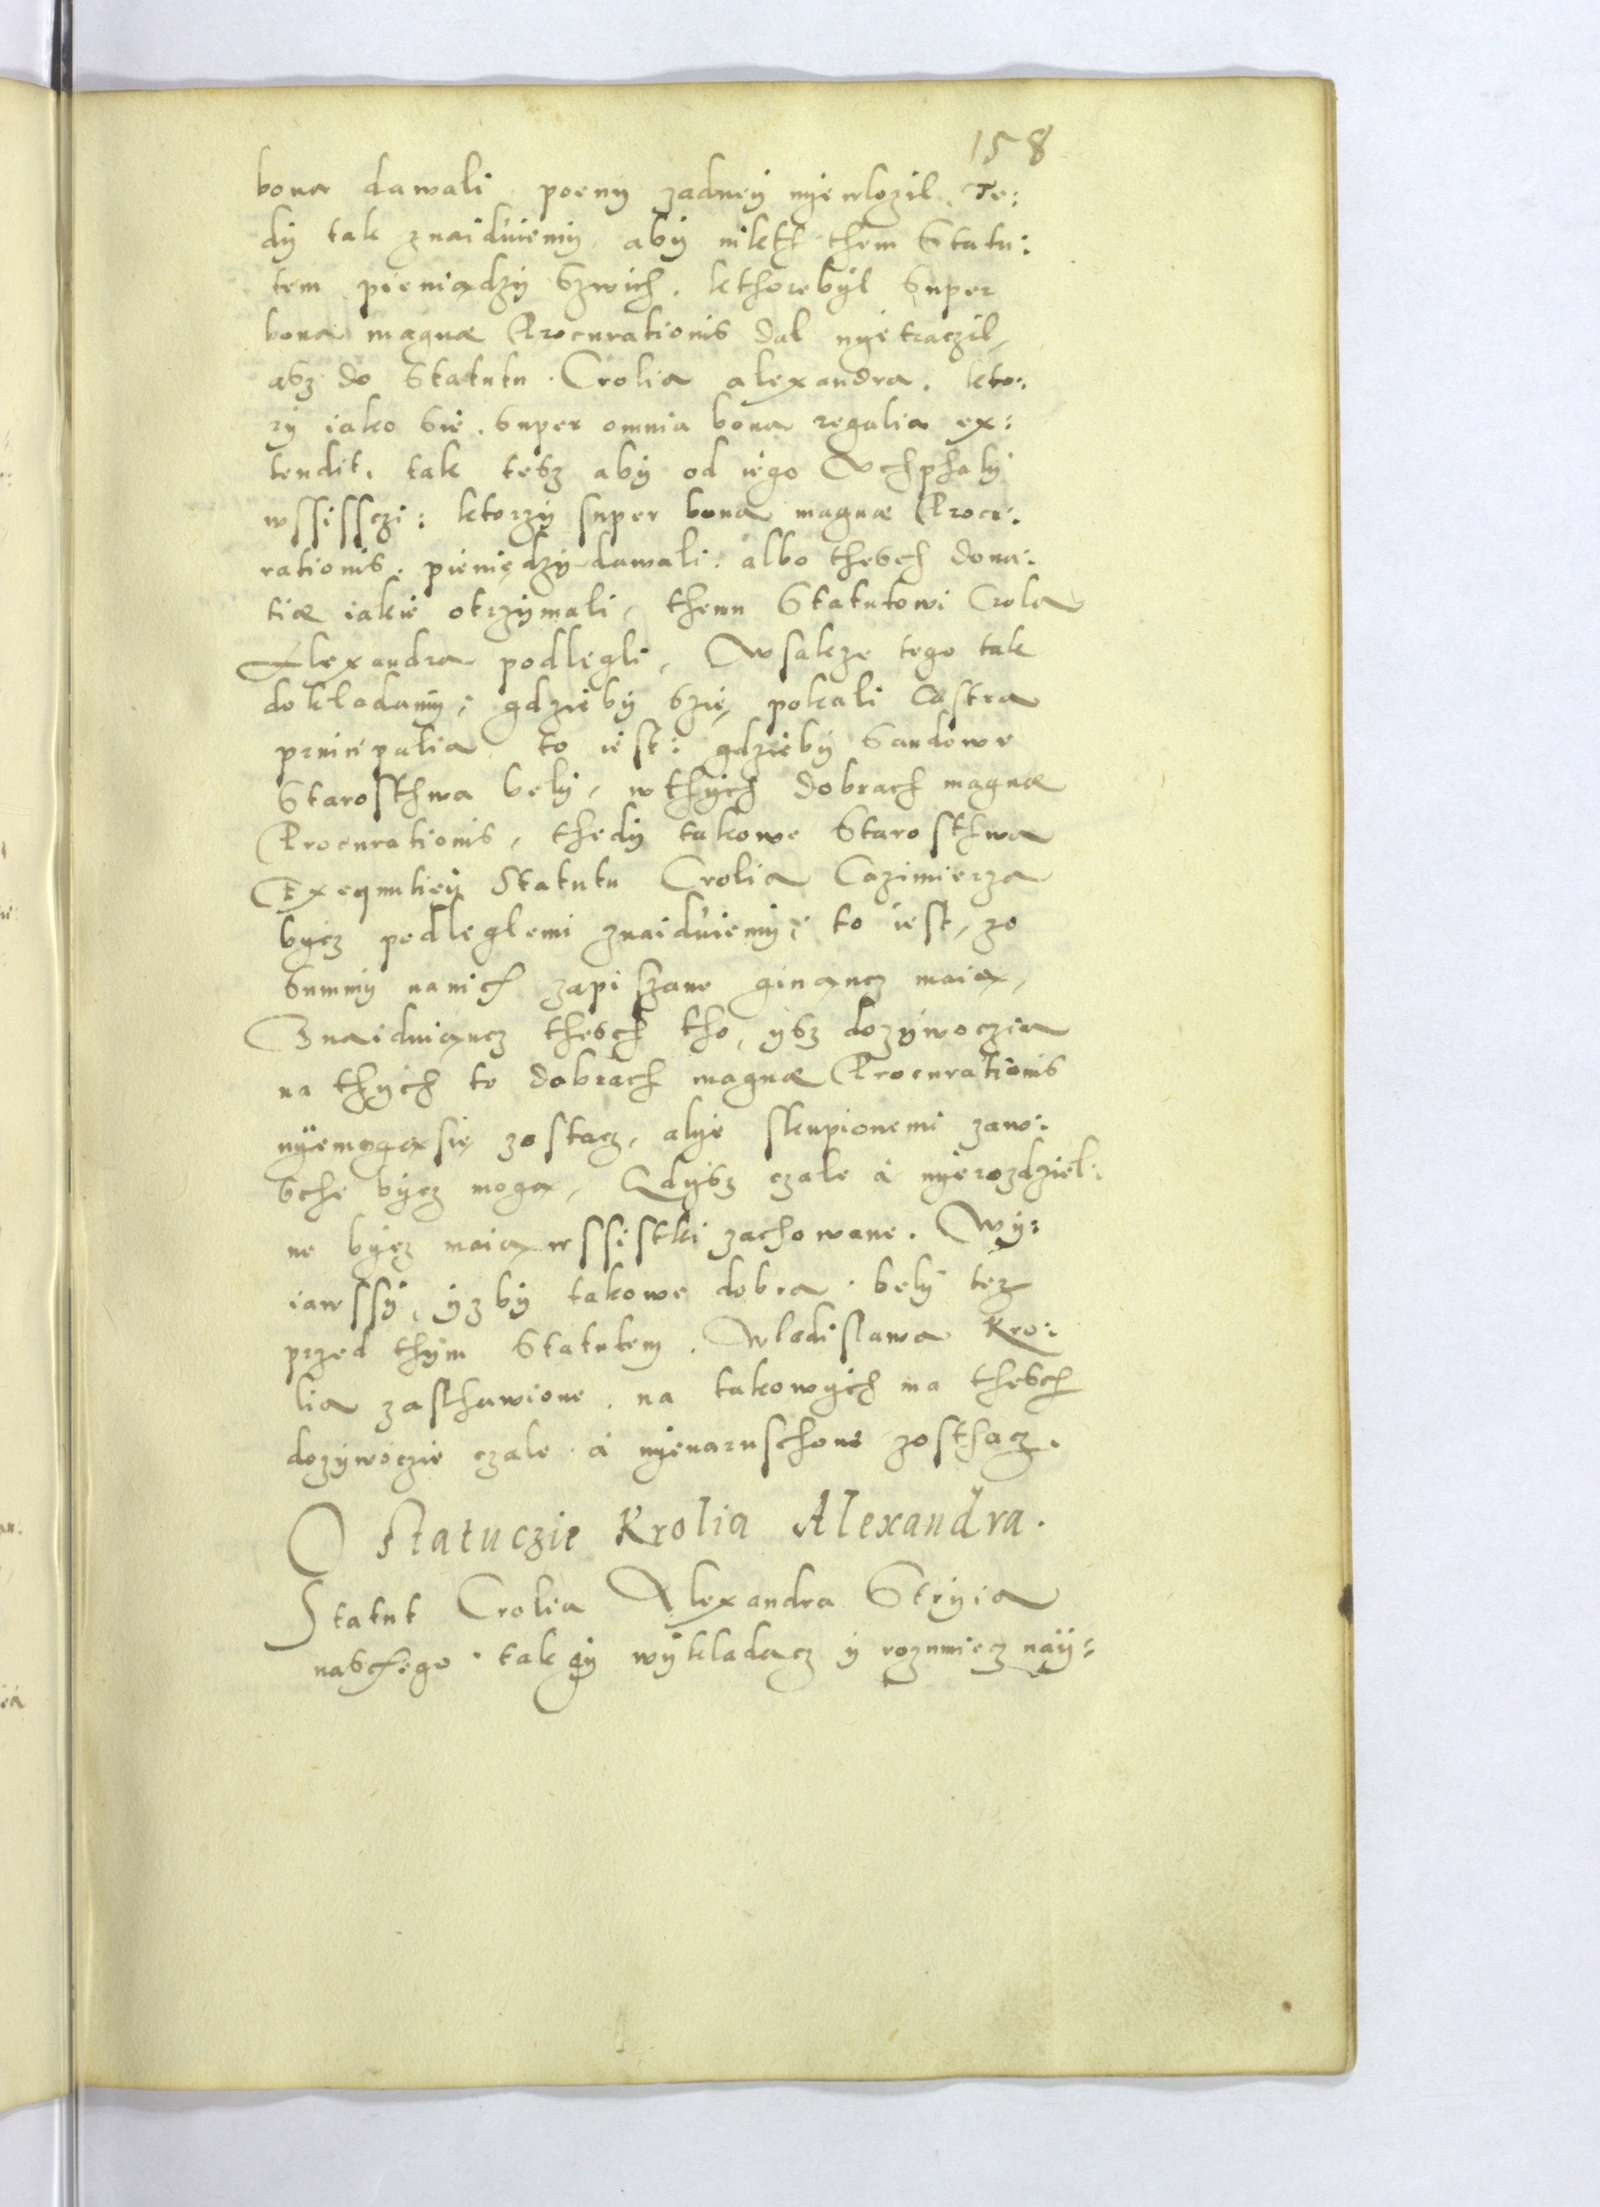 158
bona dawali poeny zadney nyewlozil, Te:
dy tak znaiduiemy, aby nikth them Statu:
tem pieniądzy Szwich. kthorebyl Super
bona magnæ Procurationis dal nyetraczil,
asz do Statutu Crolia alexandra. kto:
ry iako sie. super omnia bona regalia ex:
tendit, tak tesz aby od iego Uchphaly
wssissczi: ktorzy super bona magnæ Procu:
rationis. pieniędzy dawali. albo thesch dona:
tiæ iakie otrzymali, themu Statutowi Crola
Alexandra podlegli, Wsakze tego tak
dokładamy, gdzieby szię pokali Castra
principalia to iest: gdzieby Sandowe
Starosthwa bely, wthych dobrach magnæ
Procurationis, thedy takowe Starosthwa
Exequutiey Statutu Crolia Cazimierza
bycz podleglemi znaiduiemy, to iest, ze
Summy nanich zapiszane ginąncz maią,
Znaiduiąncz thesch tho, ysz dozywoczia
na thych to dobrach magnæ Procurationis
nyemogąsię zostacz, alye skupionemi zaw:
sche bycz mogą, Gdysz czale á nyerozdziel:
ne bycz maią wssistki zachowane. Wy:
iawssy, yzby takowe dobra bely tez
przed thym Statutem. Wladislawa Kro:
lia zasthawione. na takowych ma thesch
dozywoczie czale á nyenaruschone zosthacz.
O Statuczie Krolia Alexandra.
Statut Crolia Alexandra Stryia
naschego tak gy wykladacz y rozumiecz nay: